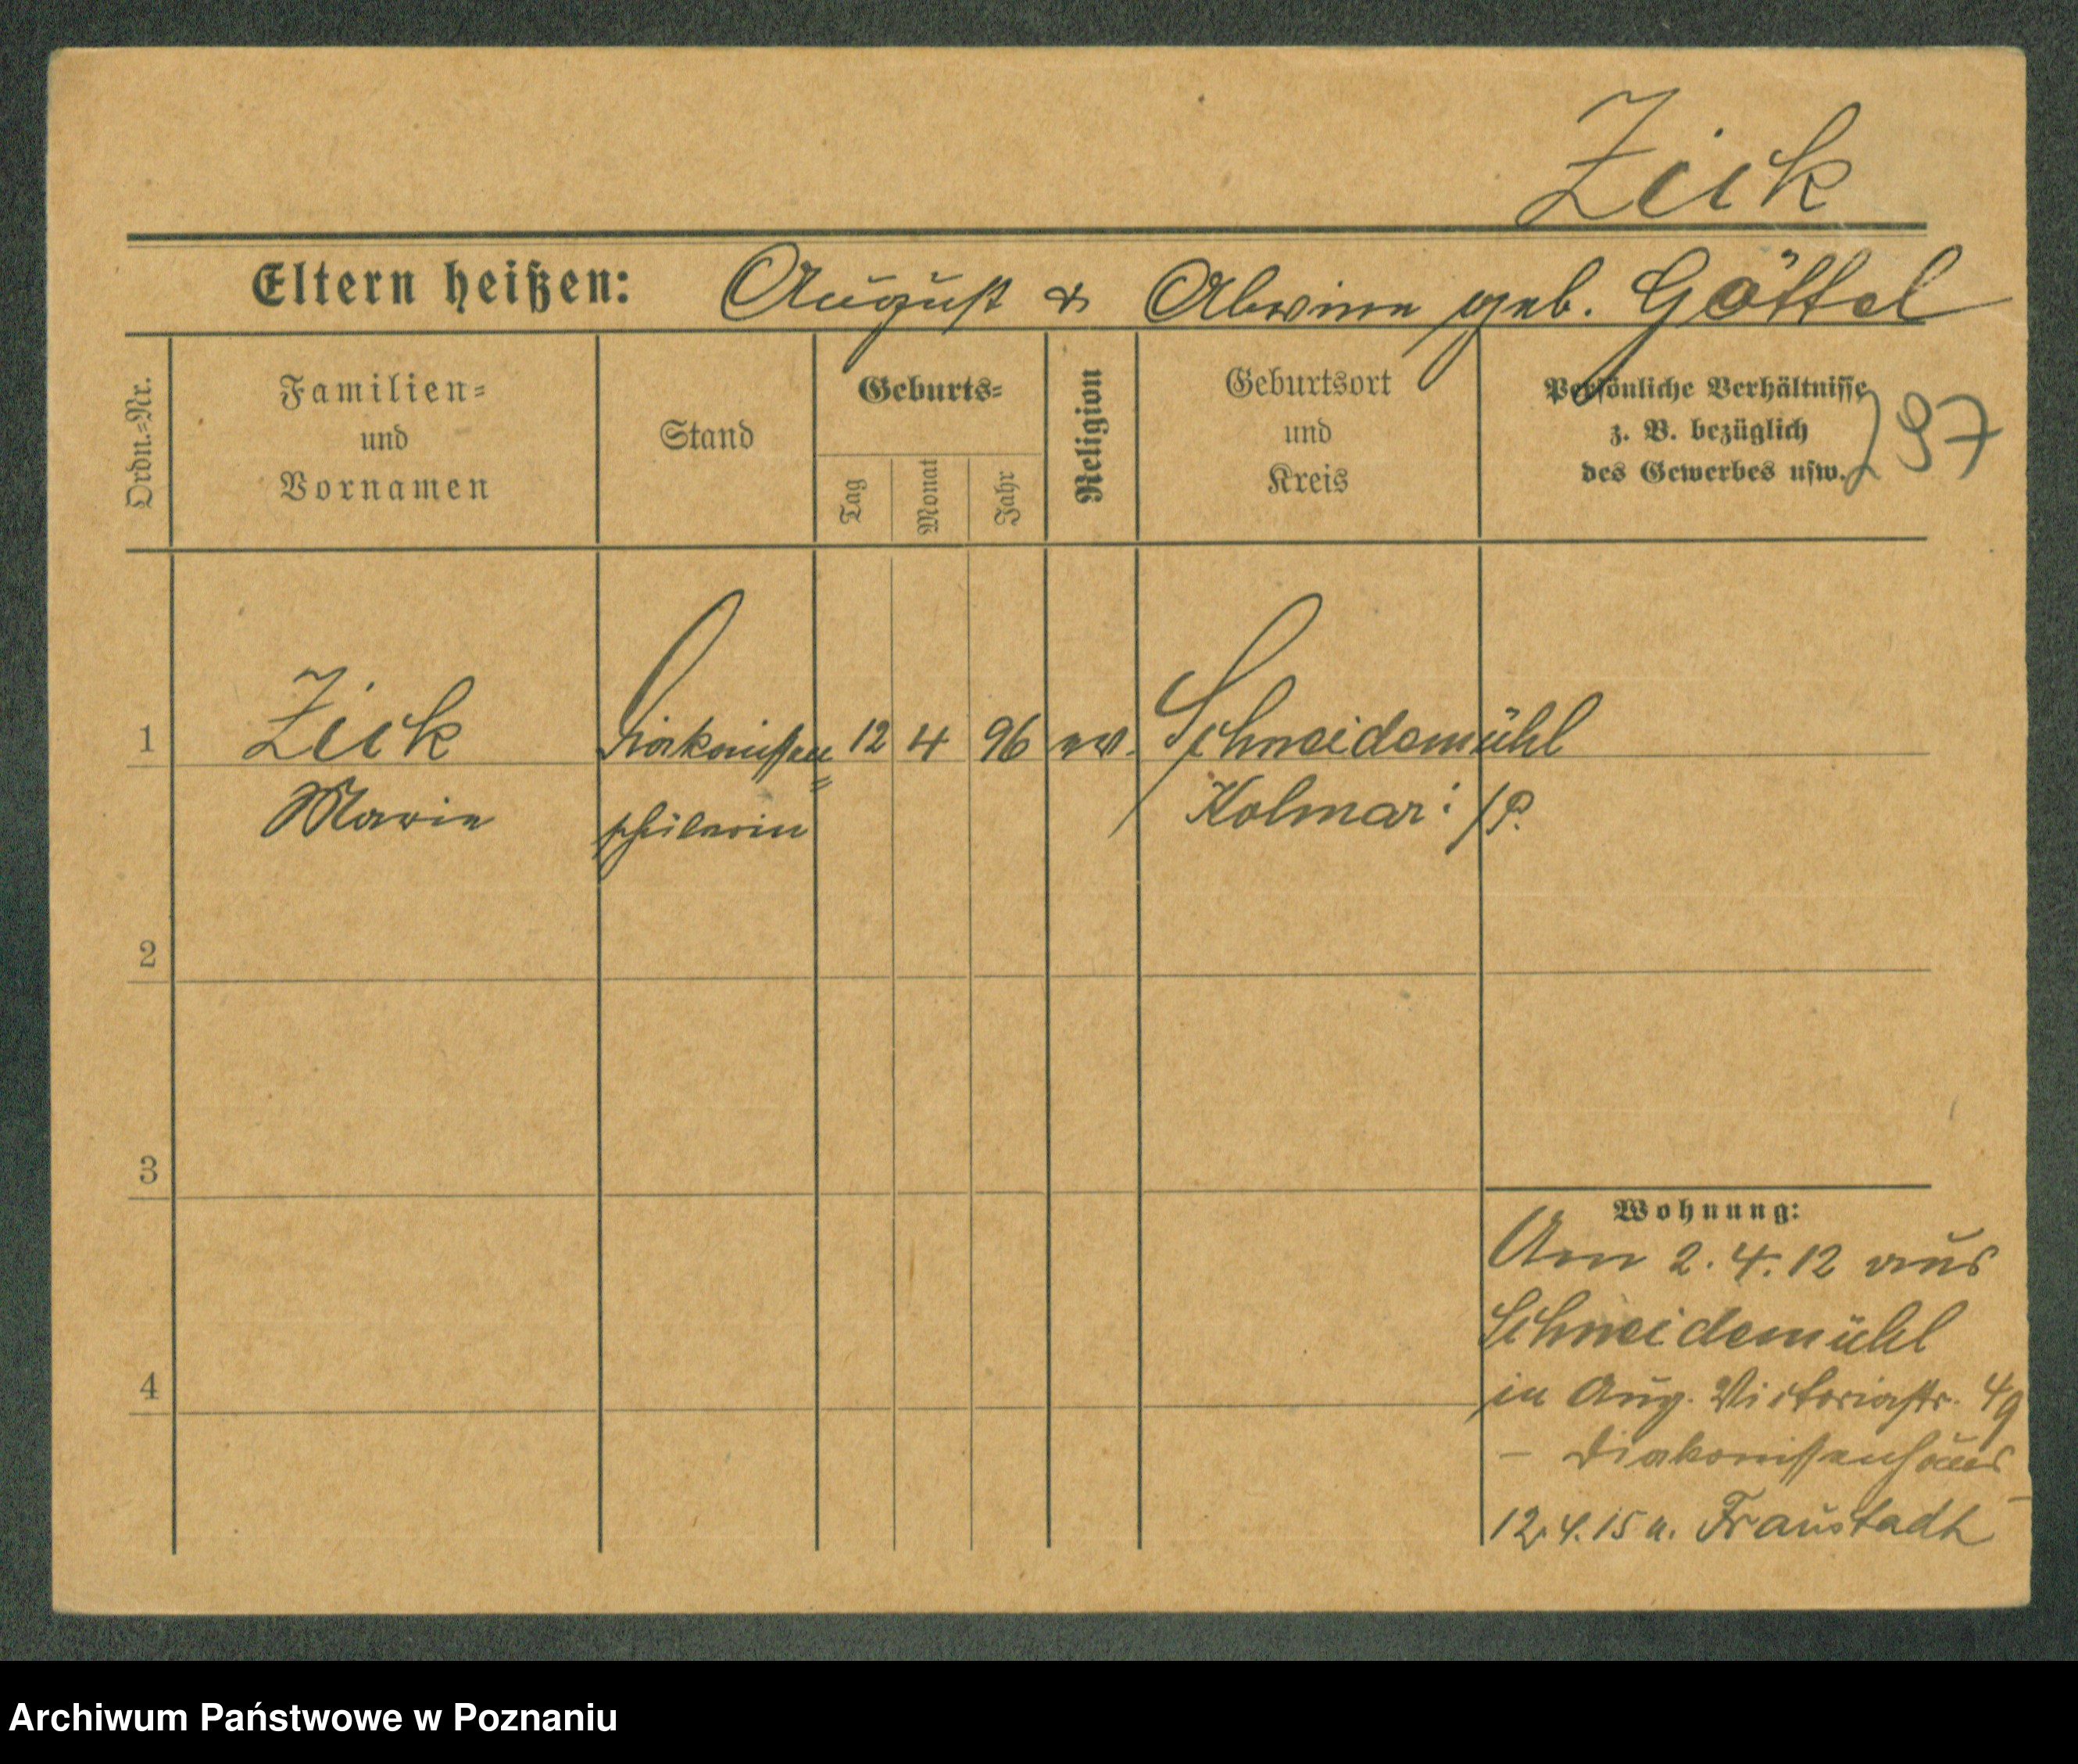 Zick
Eltern heißen: August & Alwine geb. Göttel
Ordn.-Nr.
Familien-
und
Vornamen
Stand
Geburts-
Tag
Monat
Jahr
Religion
Geburtsort
und
Kreis
Persönliche Verhältnisse
z. B. bezüglich
des Gewerbes usw.
297
1 Zick Diakonissen= 12 4 96 ev. Schneidemühl
Marie schülerin Kolmar i/P.
2
3
Wohnung:
Am 2.4.12 aus
Schneidemühl
4
in Aug. Victoriastr. 49
- Diakonissenhaus -
12.4.15 n. Fraustadt
Archiwum Państwowe w Poznaniu